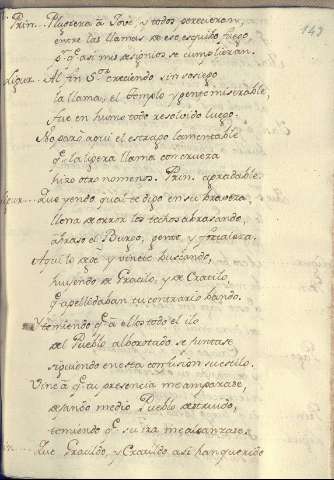 143
Prin.. Pluguiera à Jove, y todos perecieran,
entre las llamas de ese esquibo fuego,
p.r q.e asi mis designios se cumplieran.
Al fin S.or creciendo sin sosiego
la llama, el Templo y gente miserable,
fue en humo todo resolvido luego.
No parò aqui el estrago lamentable
q.e la ligera llama con crueza
hizo otro no menos. Prin. agradable.
Que yendo qual te digo en su braveza
llena de orror los techos abrasando,
abrasò el Burgo, gente, y fortaleza.
Aqui lo dejè y vineté buscando,
huiendo de Gracilo, y de Cracilo,
q.e apellidaban tu contrario bando.
Y temiendo q.e à ellos todo el ilo
del Pueblo alborotado se juntase
siguiendo en esta confusion su estilo.
Vine à q.e tu presencia me amparase,
dejando medio Pueblo destruido,
temiendo q.e su ira me alcanzase.
Que Gracildo, y Cracildo asi han querido